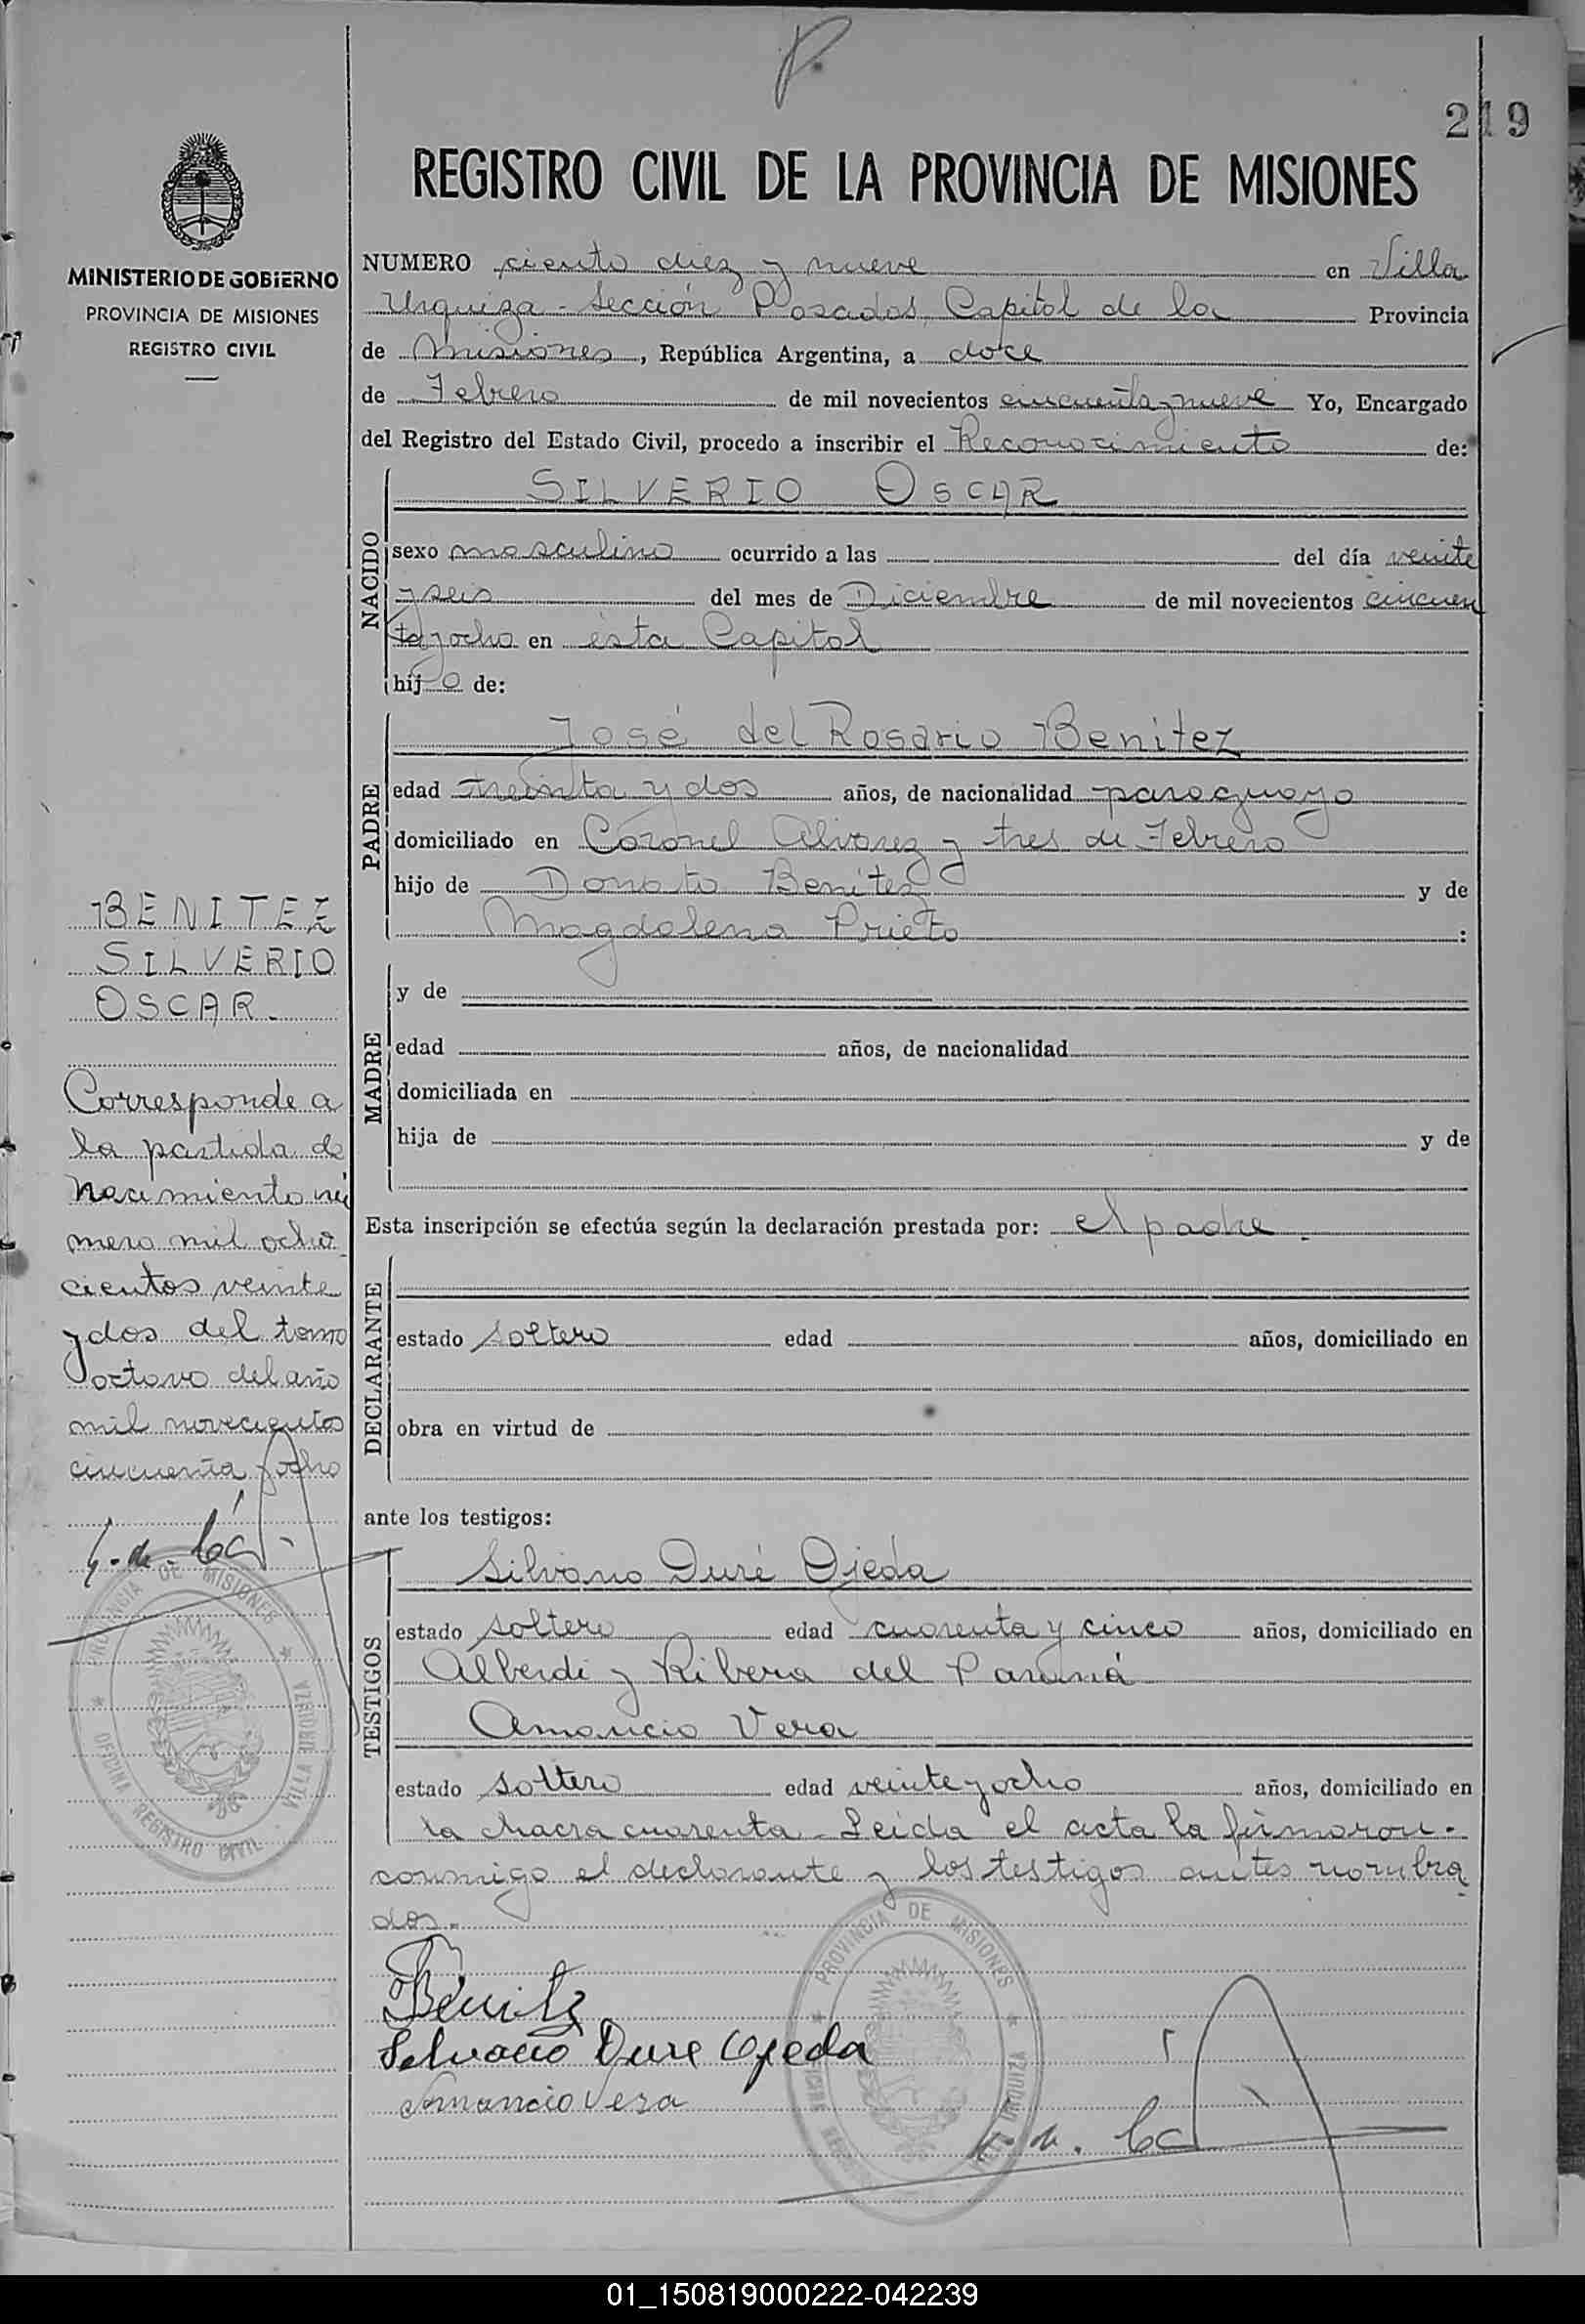 219
REGISTRO CIVIL DE LA PROVINCIA DE MISIONES
MINISTERIO DE GOBIERNO
PROVINCIA DE MISIONES
REGISTRO CIVIL
NUMERO ciento diez y nueve en Villa
Urquiza - Sección Posadas, Capital de la Provincia
de Misiones, República Argentina, a doce
de Febrero de mil novecientos cincuenta y nueve Yo, Encargado
del Registro del Estado Civil, procedo a inscribir el Reconocimiento de:
NACIDO
SILVERIO OSCAR
sexo masculino ocurrido a las del día veinte
y seis del mes de Diciembre de mil novecientos cincuen
ta y ocho en ésta Capital
hijo de:
PADRE
José del Rosario Benitez
edad treinta y dos años, de nacionalidad paraguayo
domiciliado en Coronel Alvarez y tres de Febrero
hijo de Donato Benitez y de
Magdalena Prieto :
MADRE
y de
edad años, de nacionalidad
domiciliada en
hija de y de
Esta inscripción se efectúa según la declaración prestada por: el padre.
DECLARANTE
estado soltero edad años, domiciliado en
obra en virtud de
ante los testigos:
TESTIGOS
Silvano Duré Ojeda
estado soltero edad cuarenta y cinco años, domiciliado en
Alberdi y Ribera del Paraná
Amancio Vera
estado soltero edad veinte y ocho años, domiciliado en
la chacra cuarenta - Leida el acta la firmaron.
conmigo el declarante y los testigos antes nombra
dos.-
Benitez
Silvano Dure Ojeda
Amancio Vera
PROVINCIA DE MISIONES
BENITEZ
SILVERIO
OSCAR.
Corresponde a
la partida de
nacimiento nú
mero mil ocho
cientos veinte
y dos del tomo
octavo del año
mil novecientos
cincuenta y ocho
PROVINCIA DE MISIONES
VILLA URQUIZA
OFICINA REGISTRO CIVIL
01_150819000222-042239